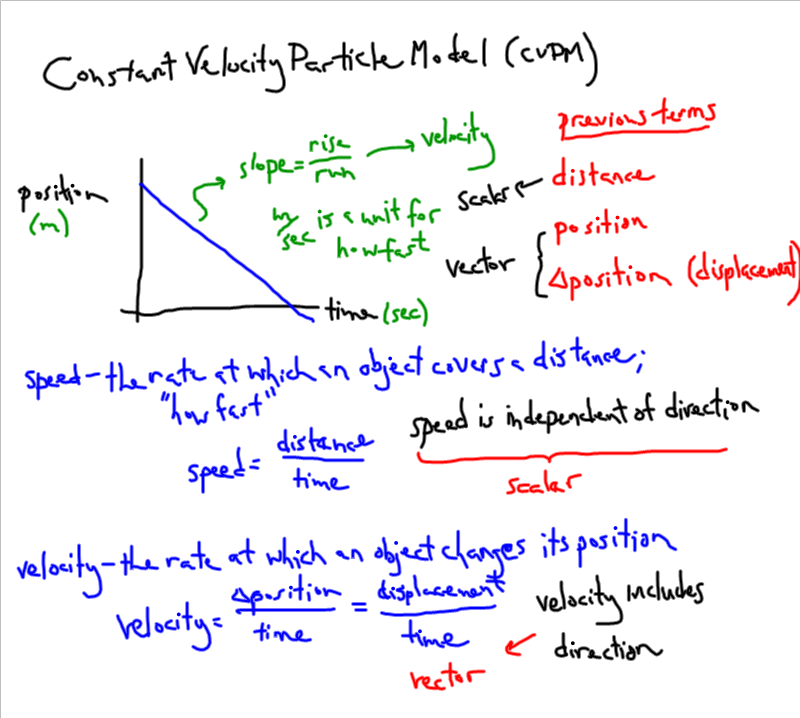 Constant Velocity Particle Model (CVPM)
previous terms
slope = rise/run → velocity
position
(m)
scalar ← distance
m/sec is a unit for
how fast
position
vector { Δposition (displacement)
time (sec)
speed - the rate at which an object covers a distance;
"how fast"
speed is independent of direction
speed = distance/time
scalar
velocity - the rate at which an object changes its position
velocity = Δposition/time = displacement/time
velocity includes
direction
vector